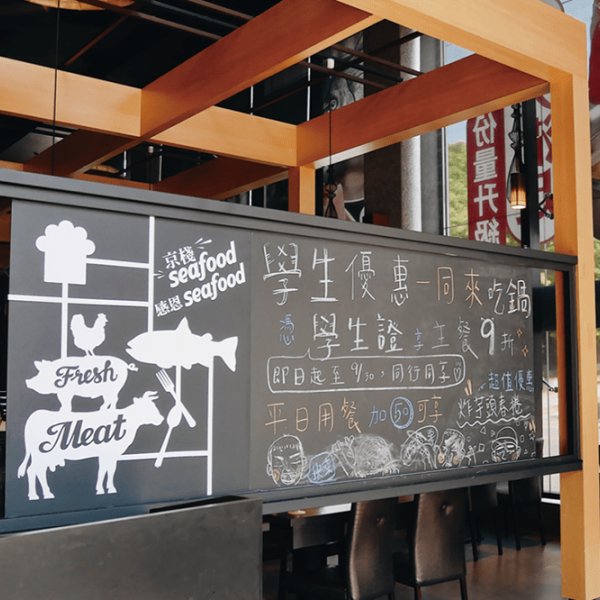 份量升級
京棧
seafood
感恩 seafood
Fresh
Meat
學生優惠一同來吃鍋
憑學生證享主餐9折
即日起至9/30，同行同享
超值優惠
平日用餐加50可享
炸芋頭春捲